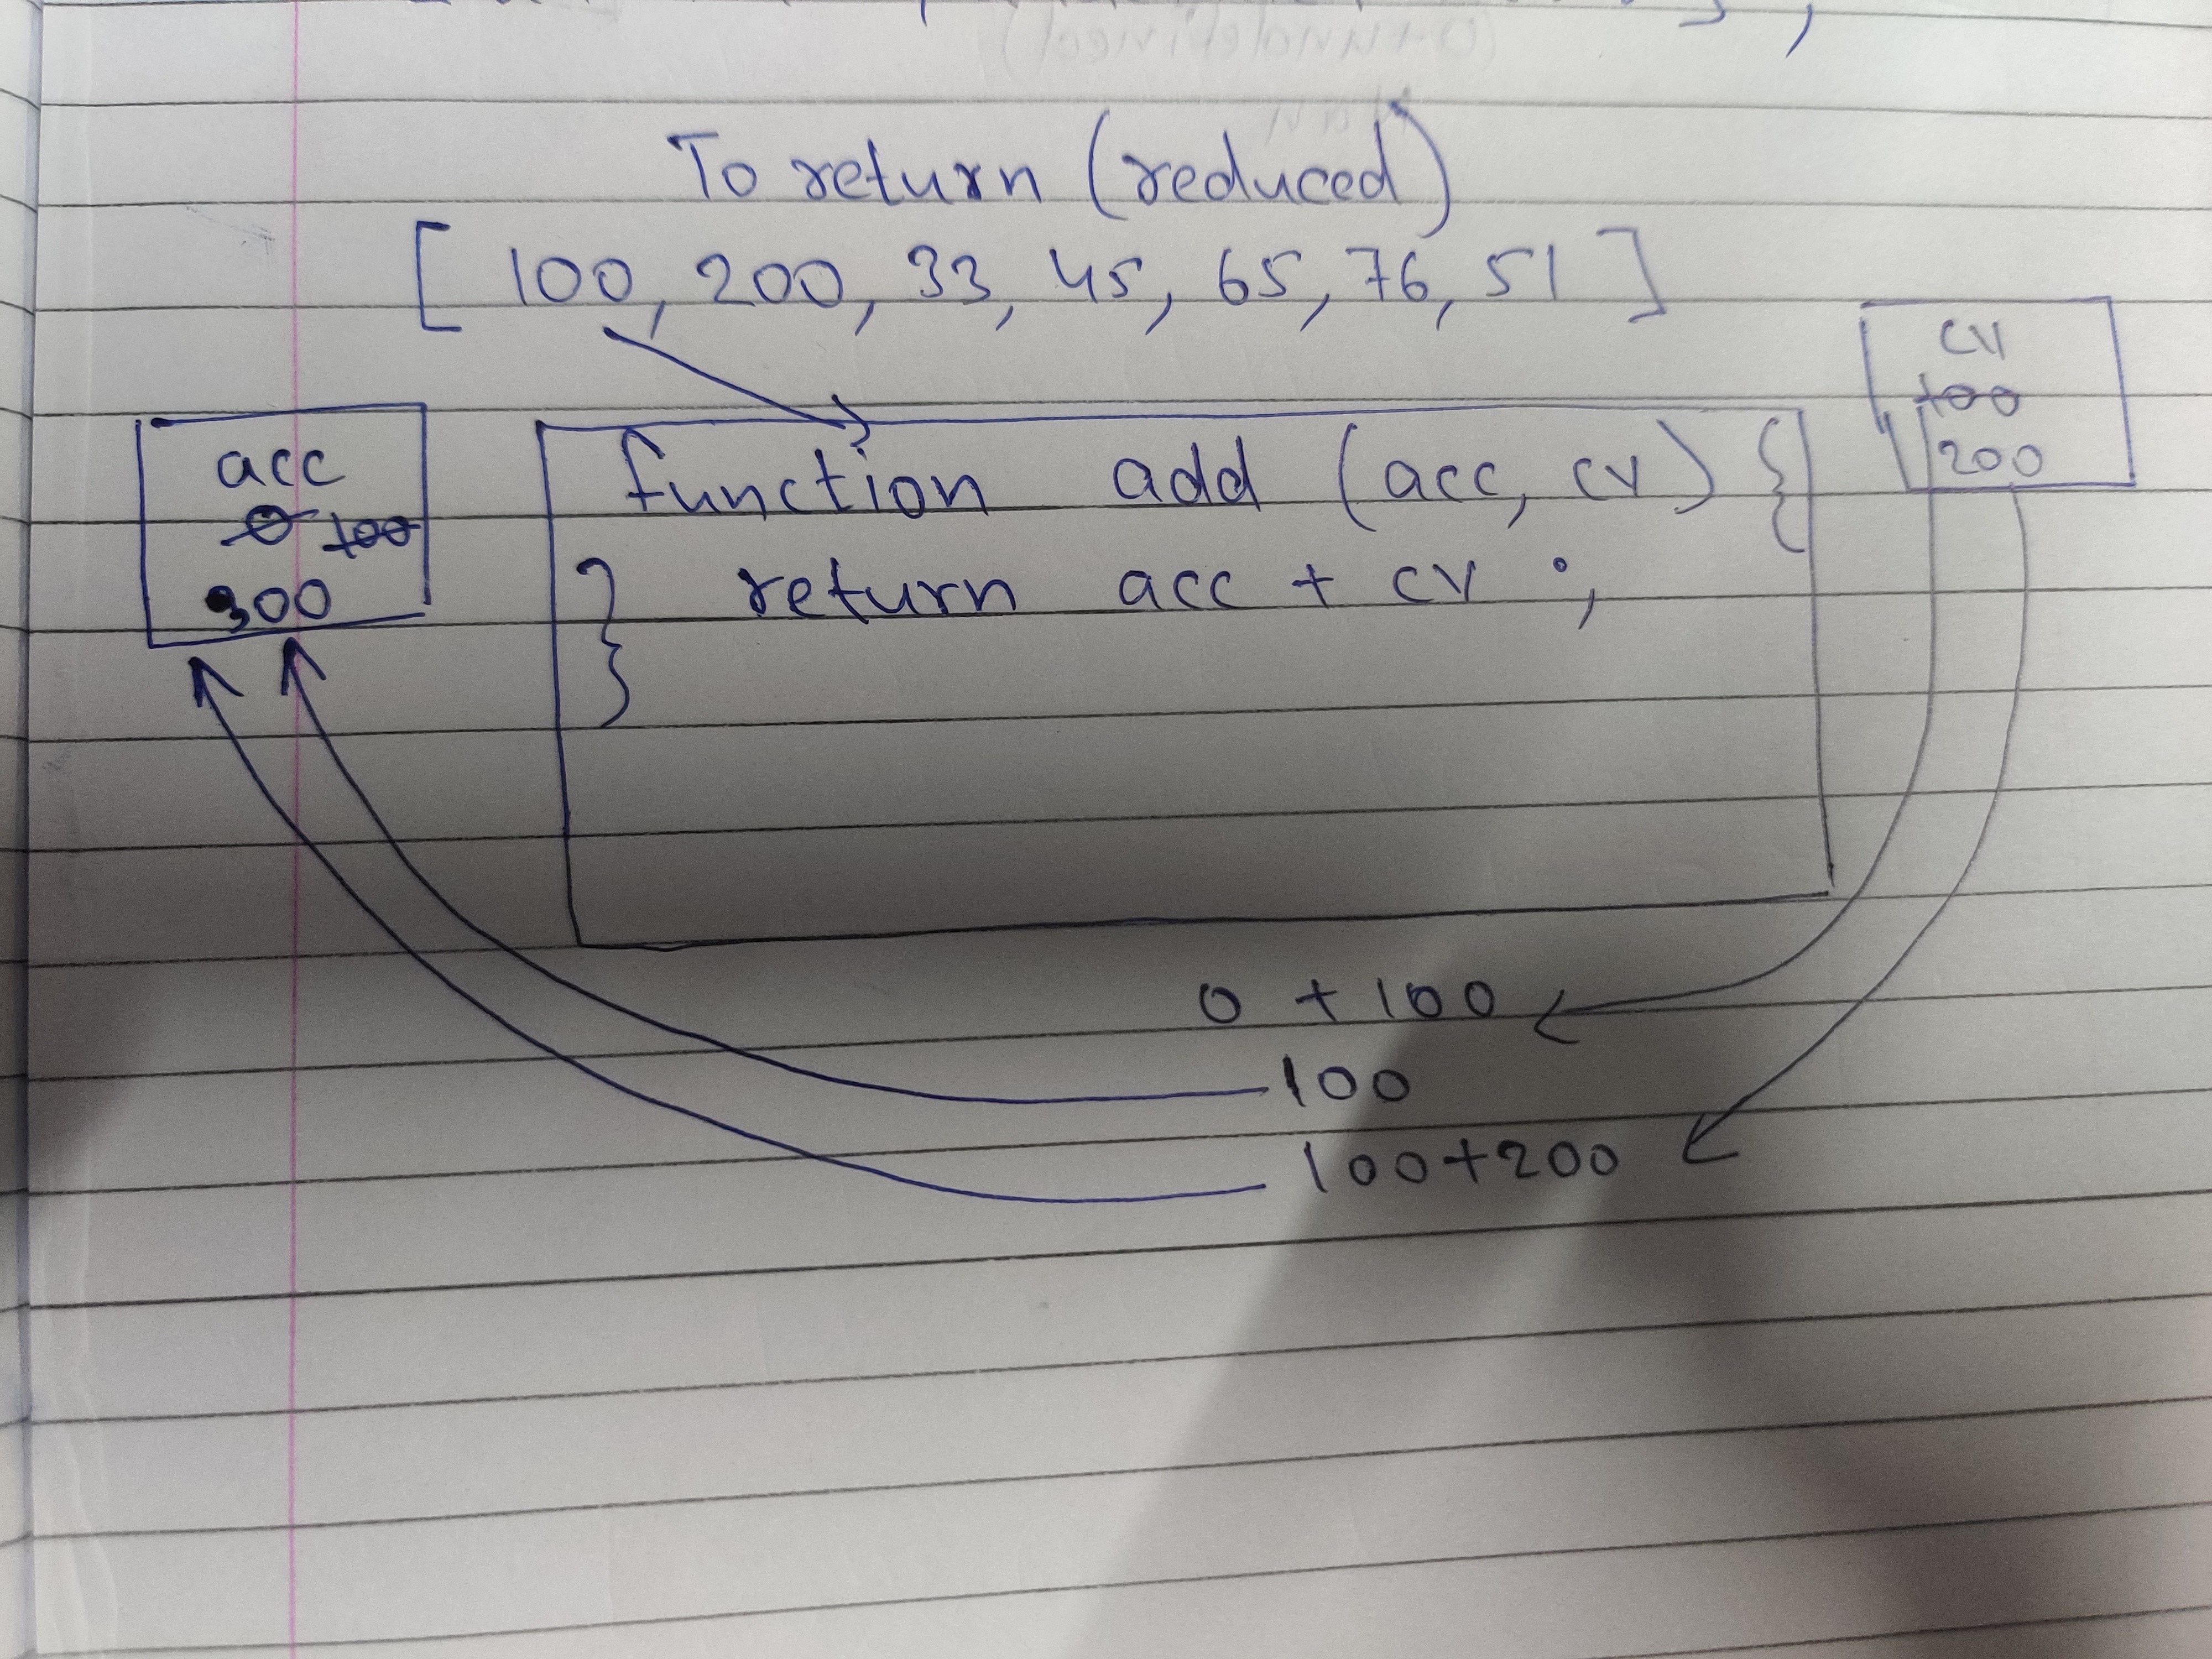 To return (reduced)
[ 100, 200, 33, 45, 65, 76, 51 ]
cv
100
200
acc
0 100
300
function add (acc, cv) {
} return acc + cv ;
0 + 100
100
100+200